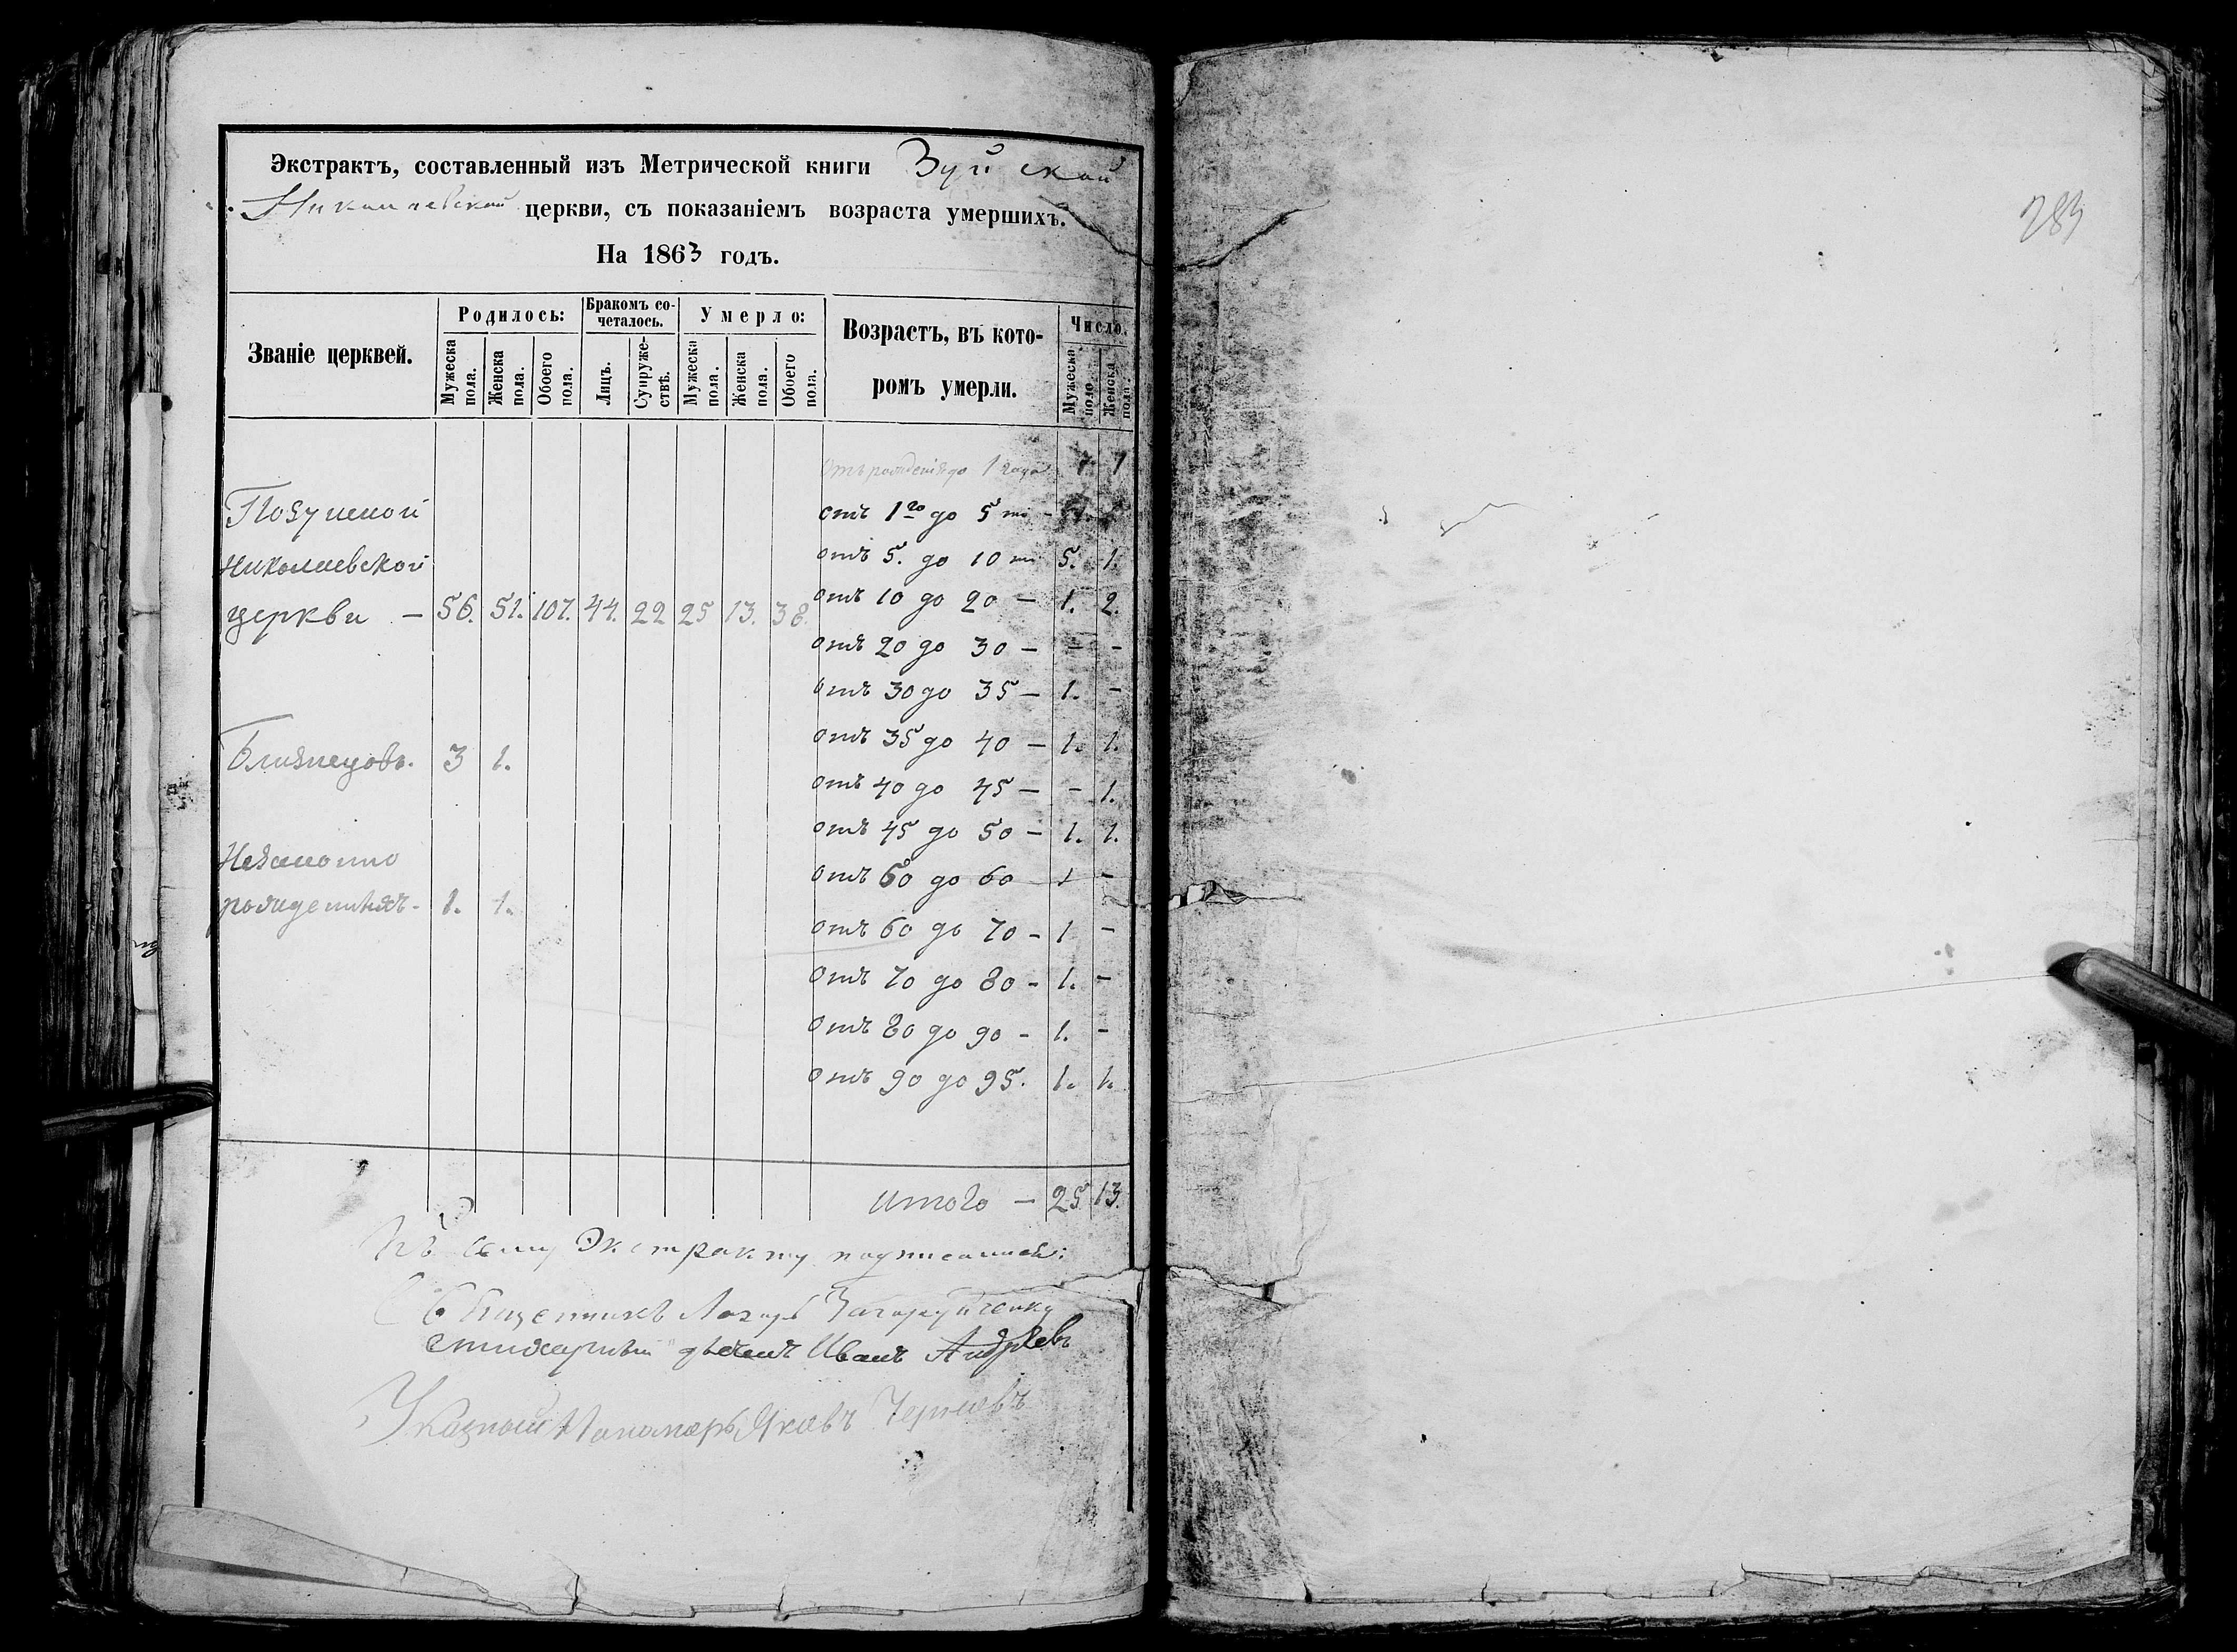 Экстрактъ, составленный изъ Метрической книги Зуйской
Николаевской церкви, съ показаніемъ возраста умершихъ.
На 1863 годъ.
Званіе церквей.
Родилось:
Мужеска пола.
Женска пола.
Обоего пола.
Бракомъ сочеталось.
Лицъ.
Супружествъ.
Умерло:
Мужеска пола.
Женска пола.
Обоего пола.
Возрастъ, въ которомъ умерли.
Число.
Мужеска поло
Женска пола.
Отъ рожденія до 1 года 7 1
отъ 1го до 5 ти -
отъ 5. до 10 ти 5. 1.
отъ 10 до 20 — 1. 2.
отъ 20 до 30 — - -
отъ 30 до 35 — 1. -
отъ 35 до 40 — 1. 1.
отъ 40 до 45 — - 1.
отъ 45 до 50 — 1. 1.
отъ 50 до 60 1 -
отъ 60 до 70 - 1 -
отъ 70 до 80 - 1. -
отъ 80 до 90 - 1. -
отъ 90 до 95. 1. 1.
Николаевской
церкви — 56. 51. 107. 44. 22 25 13. 38.
Близнецовъ. 3 1.
Незаконно
рожденныхъ - 1. 1.
Итого — 25. 13.
Къ сему Экстракту подписались:
Священникъ
Стихарный дьячекъ Иванъ Андреевъ
Указный Пономарь Яковъ Черневъ
283